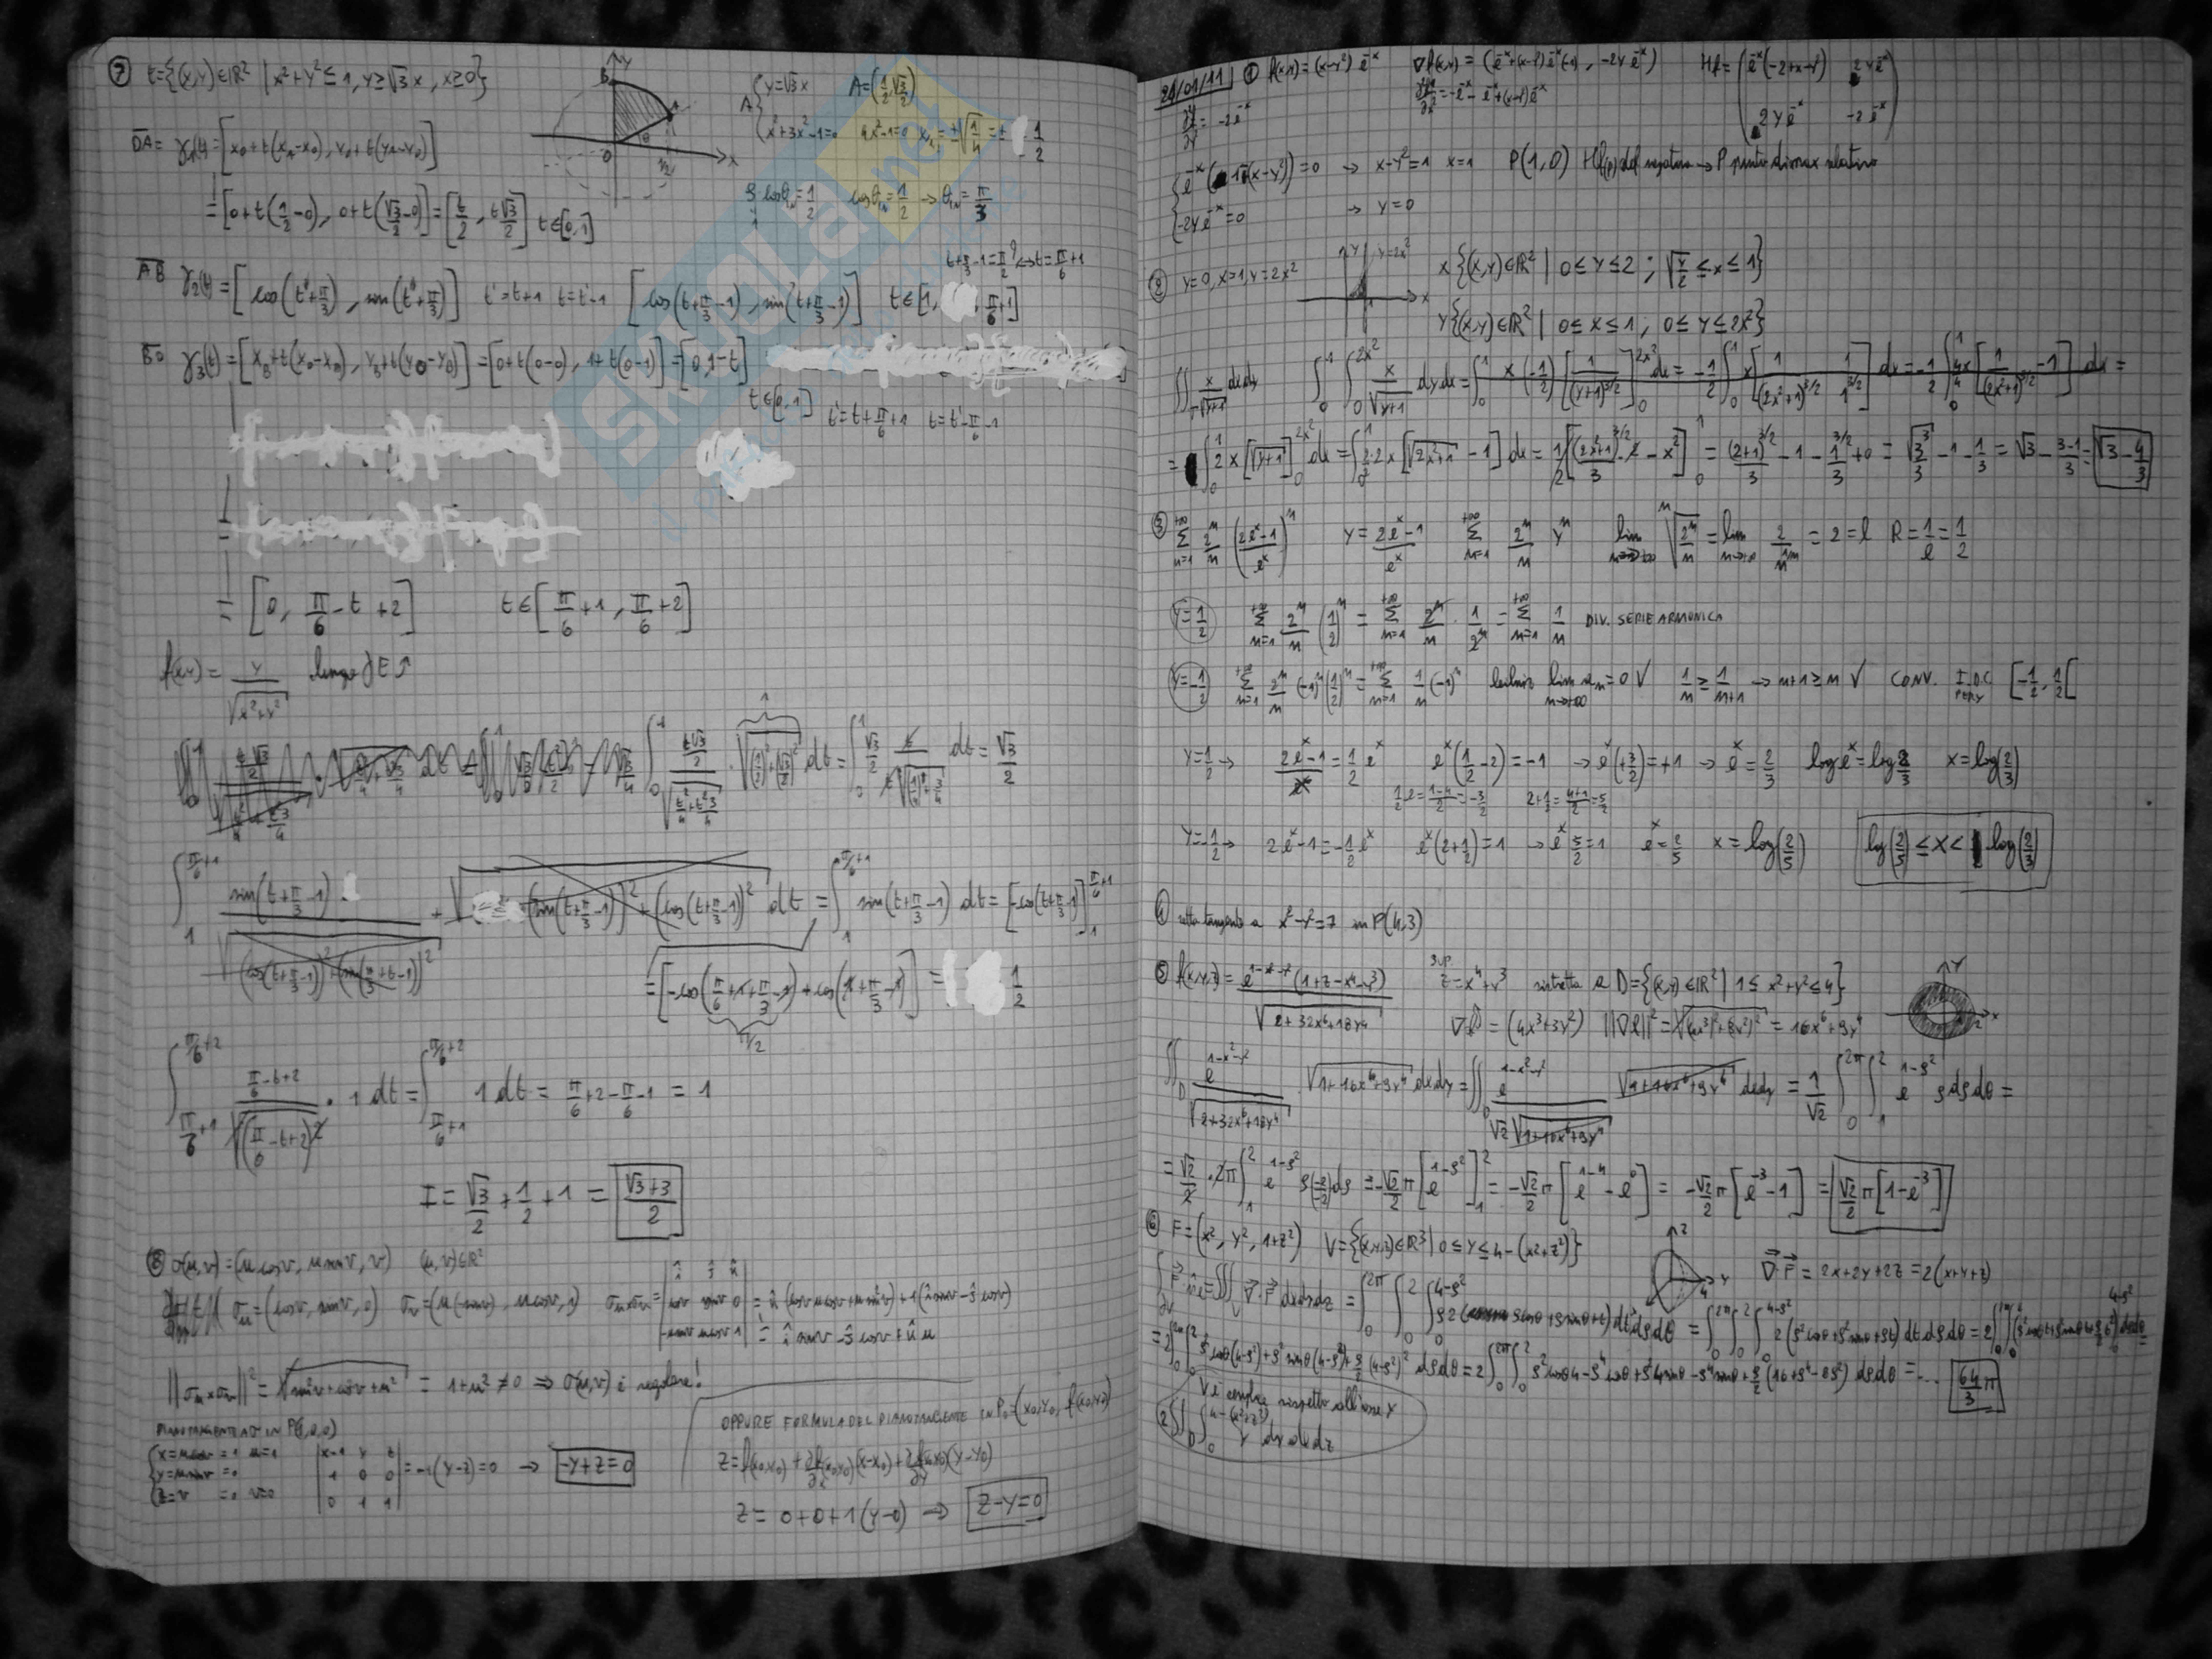 ⑦ E={(x,y)∈ℝ² | x²+y²≤1, y≥√3x, x≥0}
A { y=√3x   A=(1/2, √3/2)
x²+3x²-1=0   4x²-1=0   x₁,₂=±√(1/4)=± 1/2
OA= γ₁(t)=[x₀+t(x_A-x₀), y₀+t(y_A-y₀)]
ρ·cosθ=1/2   cosθ=1/2 → θ=π/3
=[0+t(1/2-0), 0+t(√3/2-0)]=[t/2, t√3/2] t∈[0,1]
t+π/3-1=π/2 ⟺ t=π/6+1
AB γ₂(t)=[cos(t'+π/3), sin(t'+π/3)]   t'=t+1   t=t'-1   [cos(t+π/3-1), sin(t+π/3-1)]   t∈[1, π/6+1]
BO γ₃(t)=[x_B+t(x₀-x_B), y_B+t(y₀-y_B)]=[0+t(0-0), 1+t(0-1)]=[0,1-t]
t∈[0,1]   t'=t+π/6+1   t=t'-π/6-1
=[0, π/6-t+2]   t∈[π/6+1, π/6+2]
f(x,y)= y/√(x²+y²)   lungo ∂E
∫₀¹ (t√3/2)/√(t²/4+t²3/4) · √((1/2)²+(√3/2)²) dt = ∫₀¹ √3/2 t/(t√((1/2)²+3/4)) dt = √3/2
∫₁^(π/6+1) sin(t+π/3-1)/√((cos(t+π/3-1))²+(sin(π/3+t-1))²) · √((sin(t+π/3-1))²+(cos(t+π/3-1))²) dt = ∫₁^(π/6+1) sin(t+π/3-1) dt = [-cos(t+π/3-1)]₁^(π/6+1)
=[-cos(π/6+1+π/3-1)+cos(1+π/3-1)] = 1/2
π/2
∫_(π/6+1)^(π/6+2) (π/6-t+2)/√((π/6-t+2)²) · 1 dt = ∫_(π/6+1)^(π/6+2) 1 dt = π/6+2-π/6-1 = 1
I = √3/2 + 1/2 + 1 = (√3+3)/2
⑧ σ(u,v)=(u cosv, u sinv, v)   (u,v)∈ℝ²
σu=(cosv, sinv, 0)   σv=(u(-sinv), u cosv, 1)   σu×σv= |i j k; cosv sinv 0; -u sinv u cosv 1|
= î sinv - ĵ cosv + k̂ u
||σu×σv||² = √(sin²v+cos²v+u²) = 1+u² ≠ 0 ⇒ σ(u,v) è regolare!
PIANO TANGENTE AD IN P(1,0,0)
{x=u cosv =1 u=1
y=u sinv =0
z=v =0 v=0
|x-1 y z; 1 0 0; 0 1 1| = -1(y-z)=0 → -y+z=0
OPPURE FORMULA DEL PIANO TANGENTE IN P₀=(x₀,y₀, f(x₀,y₀))
z=f(x₀,y₀)+∂f/∂x(x₀,y₀)(x-x₀)+∂f/∂y(x₀,y₀)(y-y₀)
z= 0+0+1(y-0) → z-y=0
24/01/11   ① f(x,y)=(x-y²)e^-x   ∇f(x,y)=(e^-x+(x-y²)e^-x(-1), -2ye^-x)   Hf=(e^-x(-2+x-y²)   2ye^-x
2ye^-x   -2e^-x)
{e^-x(1-(x-y²))=0 → x-y²=1   x=1   P(1,0)   Hf(P) def negativa → P punto di max relativo
-2ye^-x=0 → y=0
② y=0, x=1, y=2x²   y=2x²   x{(x,y)∈ℝ² | 0≤y≤2; √(y/2)≤x≤1}
y{(x,y)∈ℝ² | 0≤x≤1, 0≤y≤2x²}
∬ x/√(y+1) dxdy   ∫₀¹∫₀^(2x²) x/√(y+1) dydx = ∫₀¹ x(-1/2)[1/(y+1)^(3/2)]₀^(2x²) dx = -1/2 ∫₀¹ x[1/(2x²+1)^(3/2) - 1/1^(3/2)] dx = -1/2 ∫₀¹ 4x/4[1/(2x²+1)^(3/2) -1] dx =
= ∫₀¹ 2x[√(y+1)]₀^(2x²) dx = ∫₀¹ 2/2·2x[√(2x²+1) -1] dx = 1/2[(2x²+1)^(3/2)·2/3 - x²]₀¹ = (2+1)^(3/2)/3 -1 - 1^(3/2)/3 +0 = √3³/3 -1 -1/3 = √3 - (3-1)/3 = √3-4/3
③ Σ(n=1,+∞) 2ⁿ/n ((2e^x-1)/e^x)ⁿ   y=(2e^x-1)/e^x   Σ(n=1,+∞) 2ⁿ/n yⁿ   lim(n→+∞) ⁿ√(2ⁿ/n) = lim(n→+∞) 2/ⁿ√n = 2 = l   R=1/l=1/2
y=1/2   Σ(n=1,+∞) 2ⁿ/n (1/2)ⁿ = Σ(n=1,+∞) 2ⁿ/n · 1/2ⁿ = Σ(n=1,+∞) 1/n   DIV. SERIE ARMONICA
y=-1/2   Σ(n=1,+∞) 2ⁿ/n (-1)ⁿ(1/2)ⁿ = Σ(n=1,+∞) 1/n (-1)ⁿ   leibniz   lim(n→+∞) an=0 √   1/n ≥ 1/(n+1) → n+1≥n √   CONV.   I.D.C. PER Y [-1/2, 1/2[
y=1/2 →   2e^x-1=1/2 e^x   e^x(1/2-2)=-1 → e^x(+3/2)=+1 → e^x=2/3   log e^x=log 2/3   x=log(2/3)
1/2-2=(1-4)/2=-3/2   2+1/2=(4+1)/2=5/2
y=-1/2 →   2e^x-1=-1/2 e^x   e^x(2+1/2)=1 → e^x 5/2=1   e^x=2/5   x=log(2/5)   log(2/5)≤x< log(2/3)
④ retta tangente a x²-y²=7 in P(4,3)
⑤ f(x,y,z)= e^(1-x²-y²)(1+z-x⁴-y³)/√(2+32x⁶+18y⁴)   sup. z=x⁴+y³ ristretta a D={(x,y)∈ℝ² | 1≤x²+y²≤4}
=(4x³+3y²)   = 16x⁶+9y⁴
∬_D e^(1-x²-y²)/√(2+32x⁶+18y⁴) · √(1+16x⁶+9y⁴) dxdy = ∬_D e^(1-x²-y²)/(√2√(1+16x⁶+9y⁴)) √(1+16x⁶+9y⁴) dxdy = 1/√2 ∫₀^(2π)∫₁² e^(1-ρ²) ρdρdθ =
= √2/2·2π∫₁² e^(1-ρ²) ρ(-2/-2)dρ = -√2/2 π[e^(1-ρ²)]₁² = -√2/2 π[e^(1-4)-e⁰] = -√2/2 π[e^-3-1] = √2/2 π[1-e^-3]
⑥ F=(x², y², 1+z²)   V={(x,y,z)∈ℝ³ | 0≤y≤4-(x²+z²)}
∇·F = 2x+2y+2z = 2(x+y+z)
= 2∫₀^(2π)∫₀² ρ²cosθ(4-ρ²)+ρ²sinθ(4-ρ²)+ρ/2(4-ρ²)² dρdθ = 2∫₀^(2π)∫₀² ρ²cosθ4-ρ⁴cosθ+ρ²4sinθ-ρ⁴sinθ+ρ/2(16+ρ⁴-8ρ²) dρdθ = ... 64/3 π
V è simmetrico rispetto all'asse y
2∬_D∫₀^(4-(x²+z²)) y dy dx dz